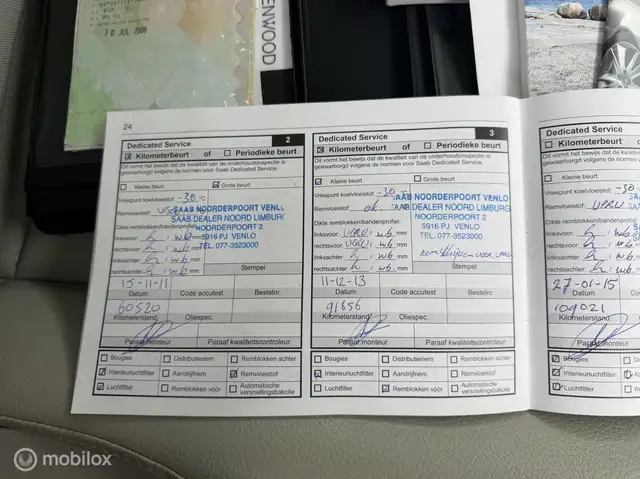 3 0 JUL 2008
KENWOOD
24
Dedicated Service 2
Kilometerbeurt of Periodieke beurt
Dit vormt het bewijs dat de kwaliteit van de onderhoudsinspectie is
gewaarborgd volgens de normen voor Saab Dedicated Service.
Kleine beurt Grote beurt
Vriespunt koelvloeistof -30 °C
Remvloeistof
SAAB NOORDERPOORT VENLO
SAAB DEALER NOORD LIMBURG
NOORDERPOORT 2
5916 PJ VENLO
TEL. 077-3523000
Dikte remblokken/bandenprofiel:
linksvoor: h, wb mm
rechtsvoor: h, wb mm
linksachter: h, wb mm
rechtsachter: h, wb mm
Stempel
15-11-11
Datum Code accutest Bestelnr.
60520
Kilometerstand Oliespec.
Paraaf monteur Paraaf kwaliteitscontrole
Bougies Distributieriem Remblokken achter
Interieurluchtfilter Aandrijfriem Remvloeistof
Luchtfilter Remblokken vóór Automatische
versnellingsbakolie
Dedicated Service 3
Kilometerbeurt of Periodieke beurt
Dit vormt het bewijs dat de kwaliteit van de onderhoudsinspectie is
gewaarborgd volgens de normen voor Saab Dedicated Service.
Kleine beurt Grote beurt
Vriespunt koelvloeistof -30 °C
Remvloeistof ok
SAAB NOORDERPOORT VENLO
SAAB DEALER NOORD LIMBURG
NOORDERPOORT 2
5916 PJ VENLO
TEL. 077-3523000
Dikte remblokken/bandenprofiel:
linksvoor: VRV, wb mm
rechtsvoor: VRV, wb mm
linksachter: h, wb mm
rechtsachter: h, wb mm
Stempel
11-12-13
Datum Code accutest Bestelnr.
91656
Kilometerstand Oliespec.
Paraaf monteur Paraaf kwaliteitscontrole
Bougies Distributieriem Remblokken achter
Interieurluchtfilter Aandrijfriem Remvloeistof
Luchtfilter Remblokken vóór Automatische
versnellingsbakolie
Dedicated Service
Kilometerbeurt
Dit vormt het bewijs dat
gewaarborgd volgens de
Kleine beurt
Vriespunt koelvloeistof -50
Remvloeistof
Dikte remblokken/
linksvoor:
rechtsvoor:
linksachter:
rechtsachter:
27-01-15
Datum
109021
Kilometerstand
Paraaf monteur
Bougies
Interieurluchtfilter
Luchtfilter
mobilox